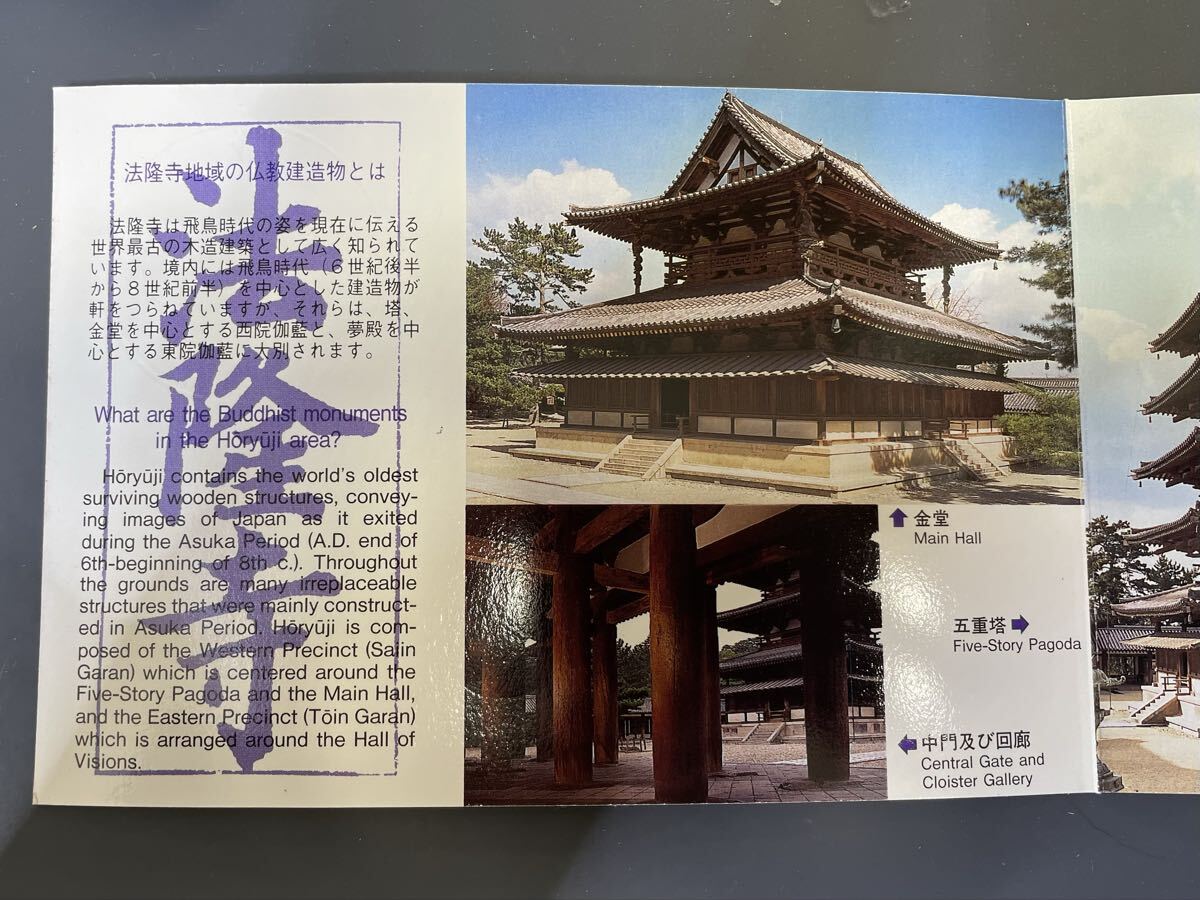 法隆寺
法隆寺地域の仏教建造物とは
法隆寺は飛鳥時代の姿を現在に伝える
世界最古の木造建築として広く知られて
います。境内には飛鳥時代（６世紀後半
から８世紀前半）を中心とした建造物が
軒をつらねていますが、それらは、塔、
金堂を中心とする西院伽藍と、夢殿を中
心とする東院伽藍に大別されます。
What are the Buddhist monuments
in the Hōryūji area?
Hōryūji contains the world's oldest
surviving wooden structures, convey-
ing images of Japan as it exited
during the Asuka Period (A.D. end of
6th-beginning of 8th c.). Throughout
the grounds are many irreplaceable
structures that were mainly construct-
ed in Asuka Period. Hōryūji is com-
posed of the Western Precinct (Saiin
Garan) which is centered around the
Five-Story Pagoda and the Main Hall,
and the Eastern Precinct (Tōin Garan)
which is arranged around the Hall of
Visions.
金堂
Main Hall
五重塔
Five-Story Pagoda
中門及び回廊
Central Gate and
Cloister Gallery